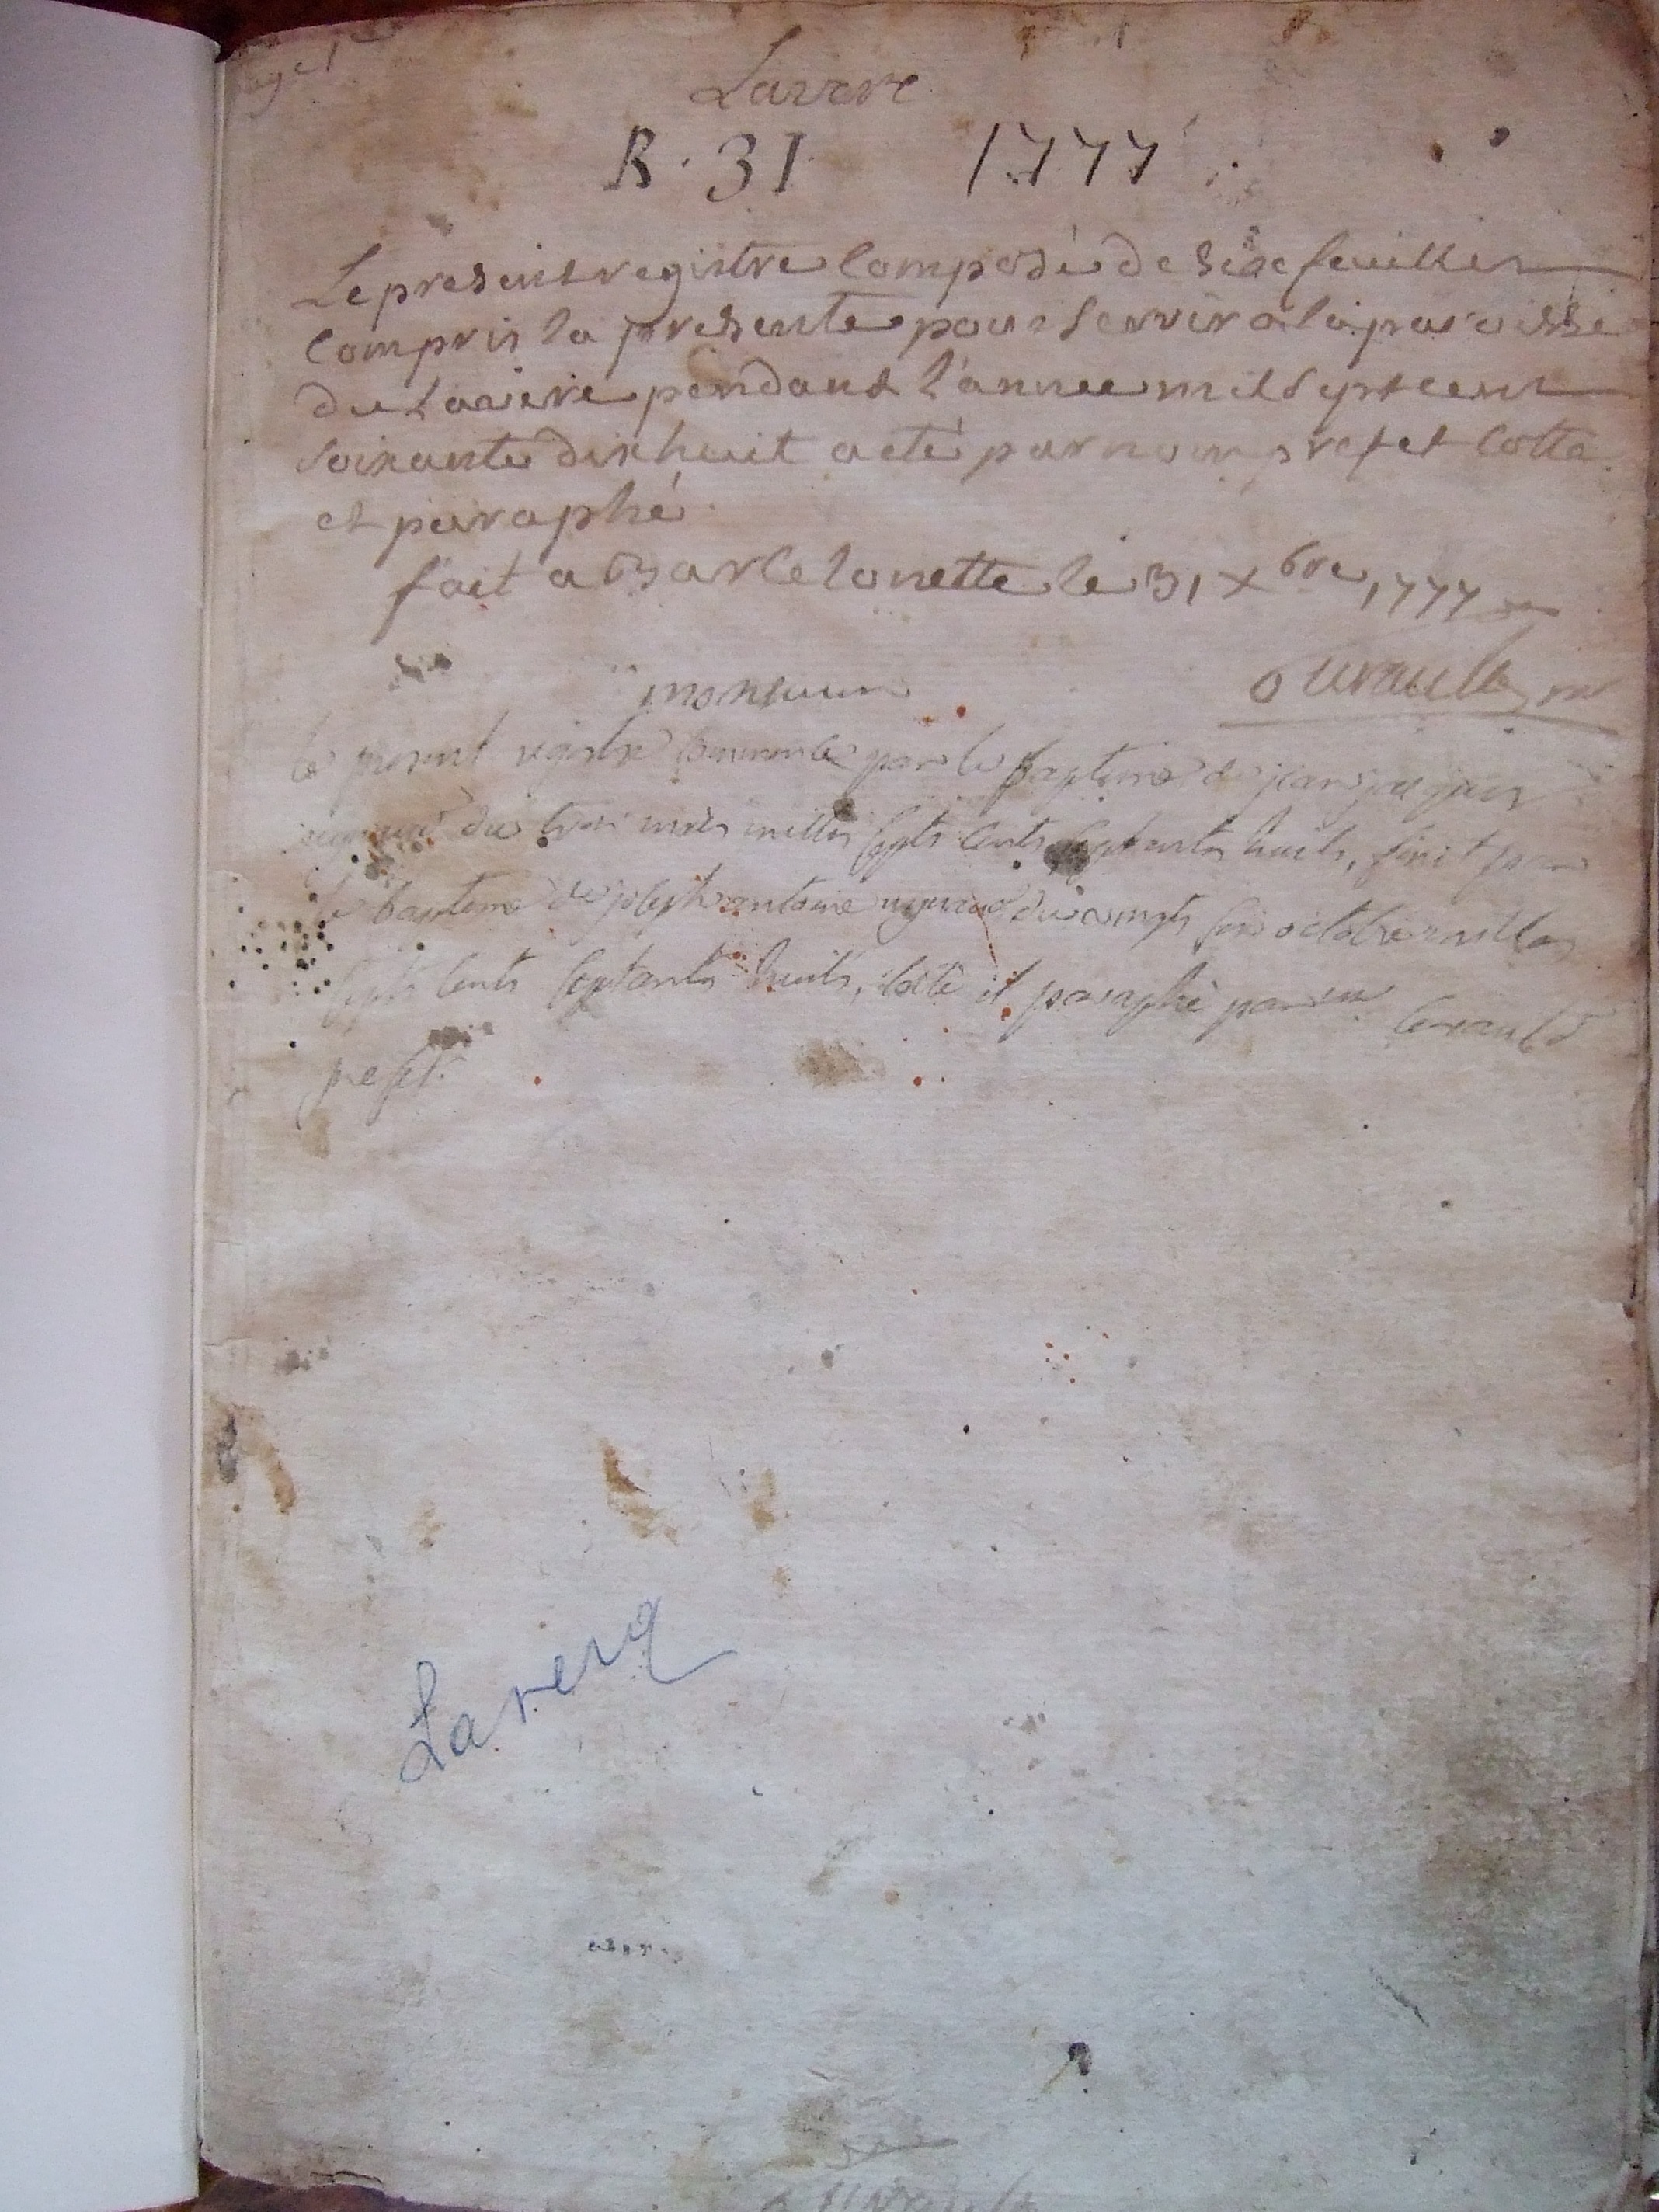 Laverc
R. 31 1777
Le present registre composé de six feuilles
compris la presente pour servir a la paroisse
du Laverc pendant l'annee mil sept cent
soixante dix huit a eté par nous prefet cotté
et paraphé
fait a Barcelonette le 31 Xbre 1777
monsieur
le present registre commence par le bapteme de jean
du mars milles septs cents septantes huits, finit par
le bapteme de joseph antoine du octobre milles
septs cents septantes huits, coté et paraphé par mr
prefet.
Laverq